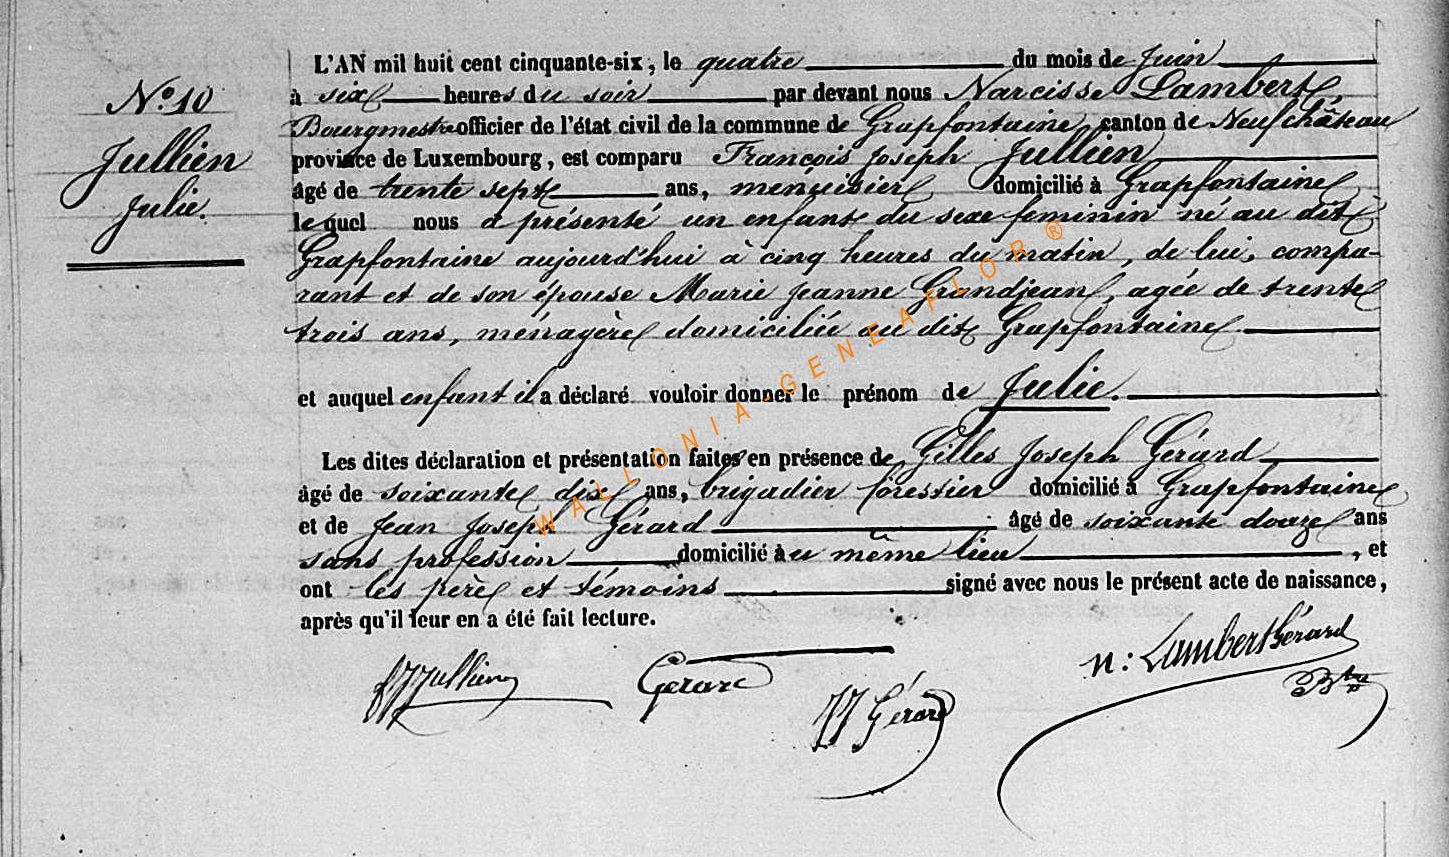 N.º 10
Jullien
Julie.
L'AN mil huit cent cinquante-six, le quatre du mois de Juin
à six heures du soir par devant nous Narcisse Lambert,
Bourgmestre officier de l'état civil de la commune de Grapfontaine, canton de Neufchâteau
province de Luxembourg, est comparu François Joseph Jullien
âgé de trente sept ans, menuisier domicilié à Grapfontaine
lequel nous a présenté un enfant du sexe feminin né au dit
Grapfontaine aujourd'hui à cinq heures du matin, de lui, compa-
rant et de son épouse Marie Jeanne Grandjean, agée de trente
trois ans, ménagère domiciliée au dit Grapfontaine.
et auquel enfant il a déclaré vouloir donner le prénom de Julie.
Les dites déclaration et présentation faites en présence de Gilles Joseph Gérard
âgé de soixante dix ans, brigadier forestier domicilié à Grapfontaine
et de Jean Joseph Gérard âgé de soixante douze ans
sans profession domicilié au même lieu, et
ont les père et témoins signé avec nous le présent acte de naissance,
après qu'il leur en a été fait lecture.
fJJullien Gerard JJ Gérard n: Lambert Gérard
Btre
WALLONIA-GENEAFLOR ®